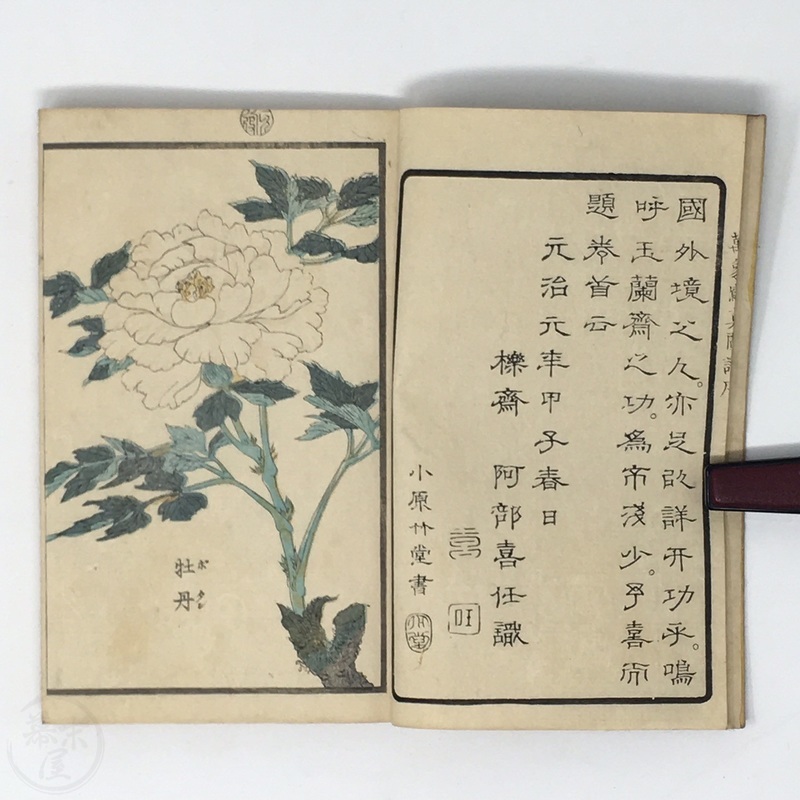 國外境之人。亦足以詳开功乎。嗚
呼玉蘭齋之功。爲不淺少。予喜而
題卷首云
元治元年甲子春日
櫟齋 阿部喜任識
小原竹堂書
竹堂
牡丹
ボタン